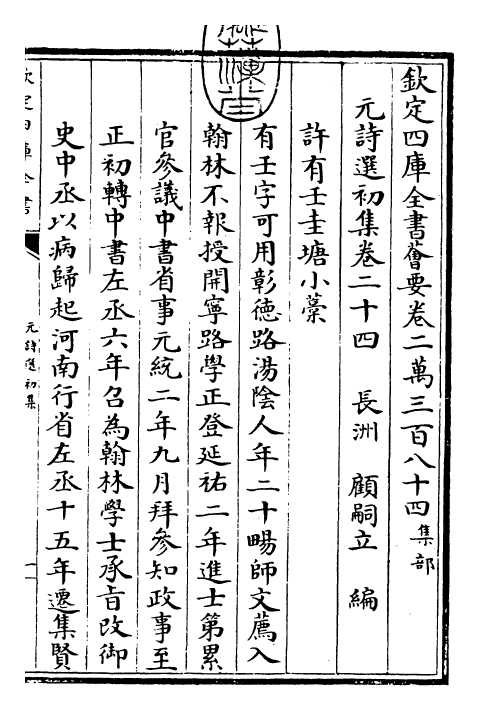 欽定四庫全書薈要卷二萬三百八十四集部
元詩選初集卷二十四　長洲　顧嗣立　編
許有壬圭塘小藁
有壬字可用彰徳路湯陰人年二十暢師文薦入
翰林不報授開寧路學正登延祐二年進士第累
官參議中書省事元統二年九月拜參知政事至
正初轉中書左丞六年召為翰林學士承㫖改御
史中丞以病歸起河南行省左丞十五年遷集賢
欽定四庫全書
元詩選初集
一